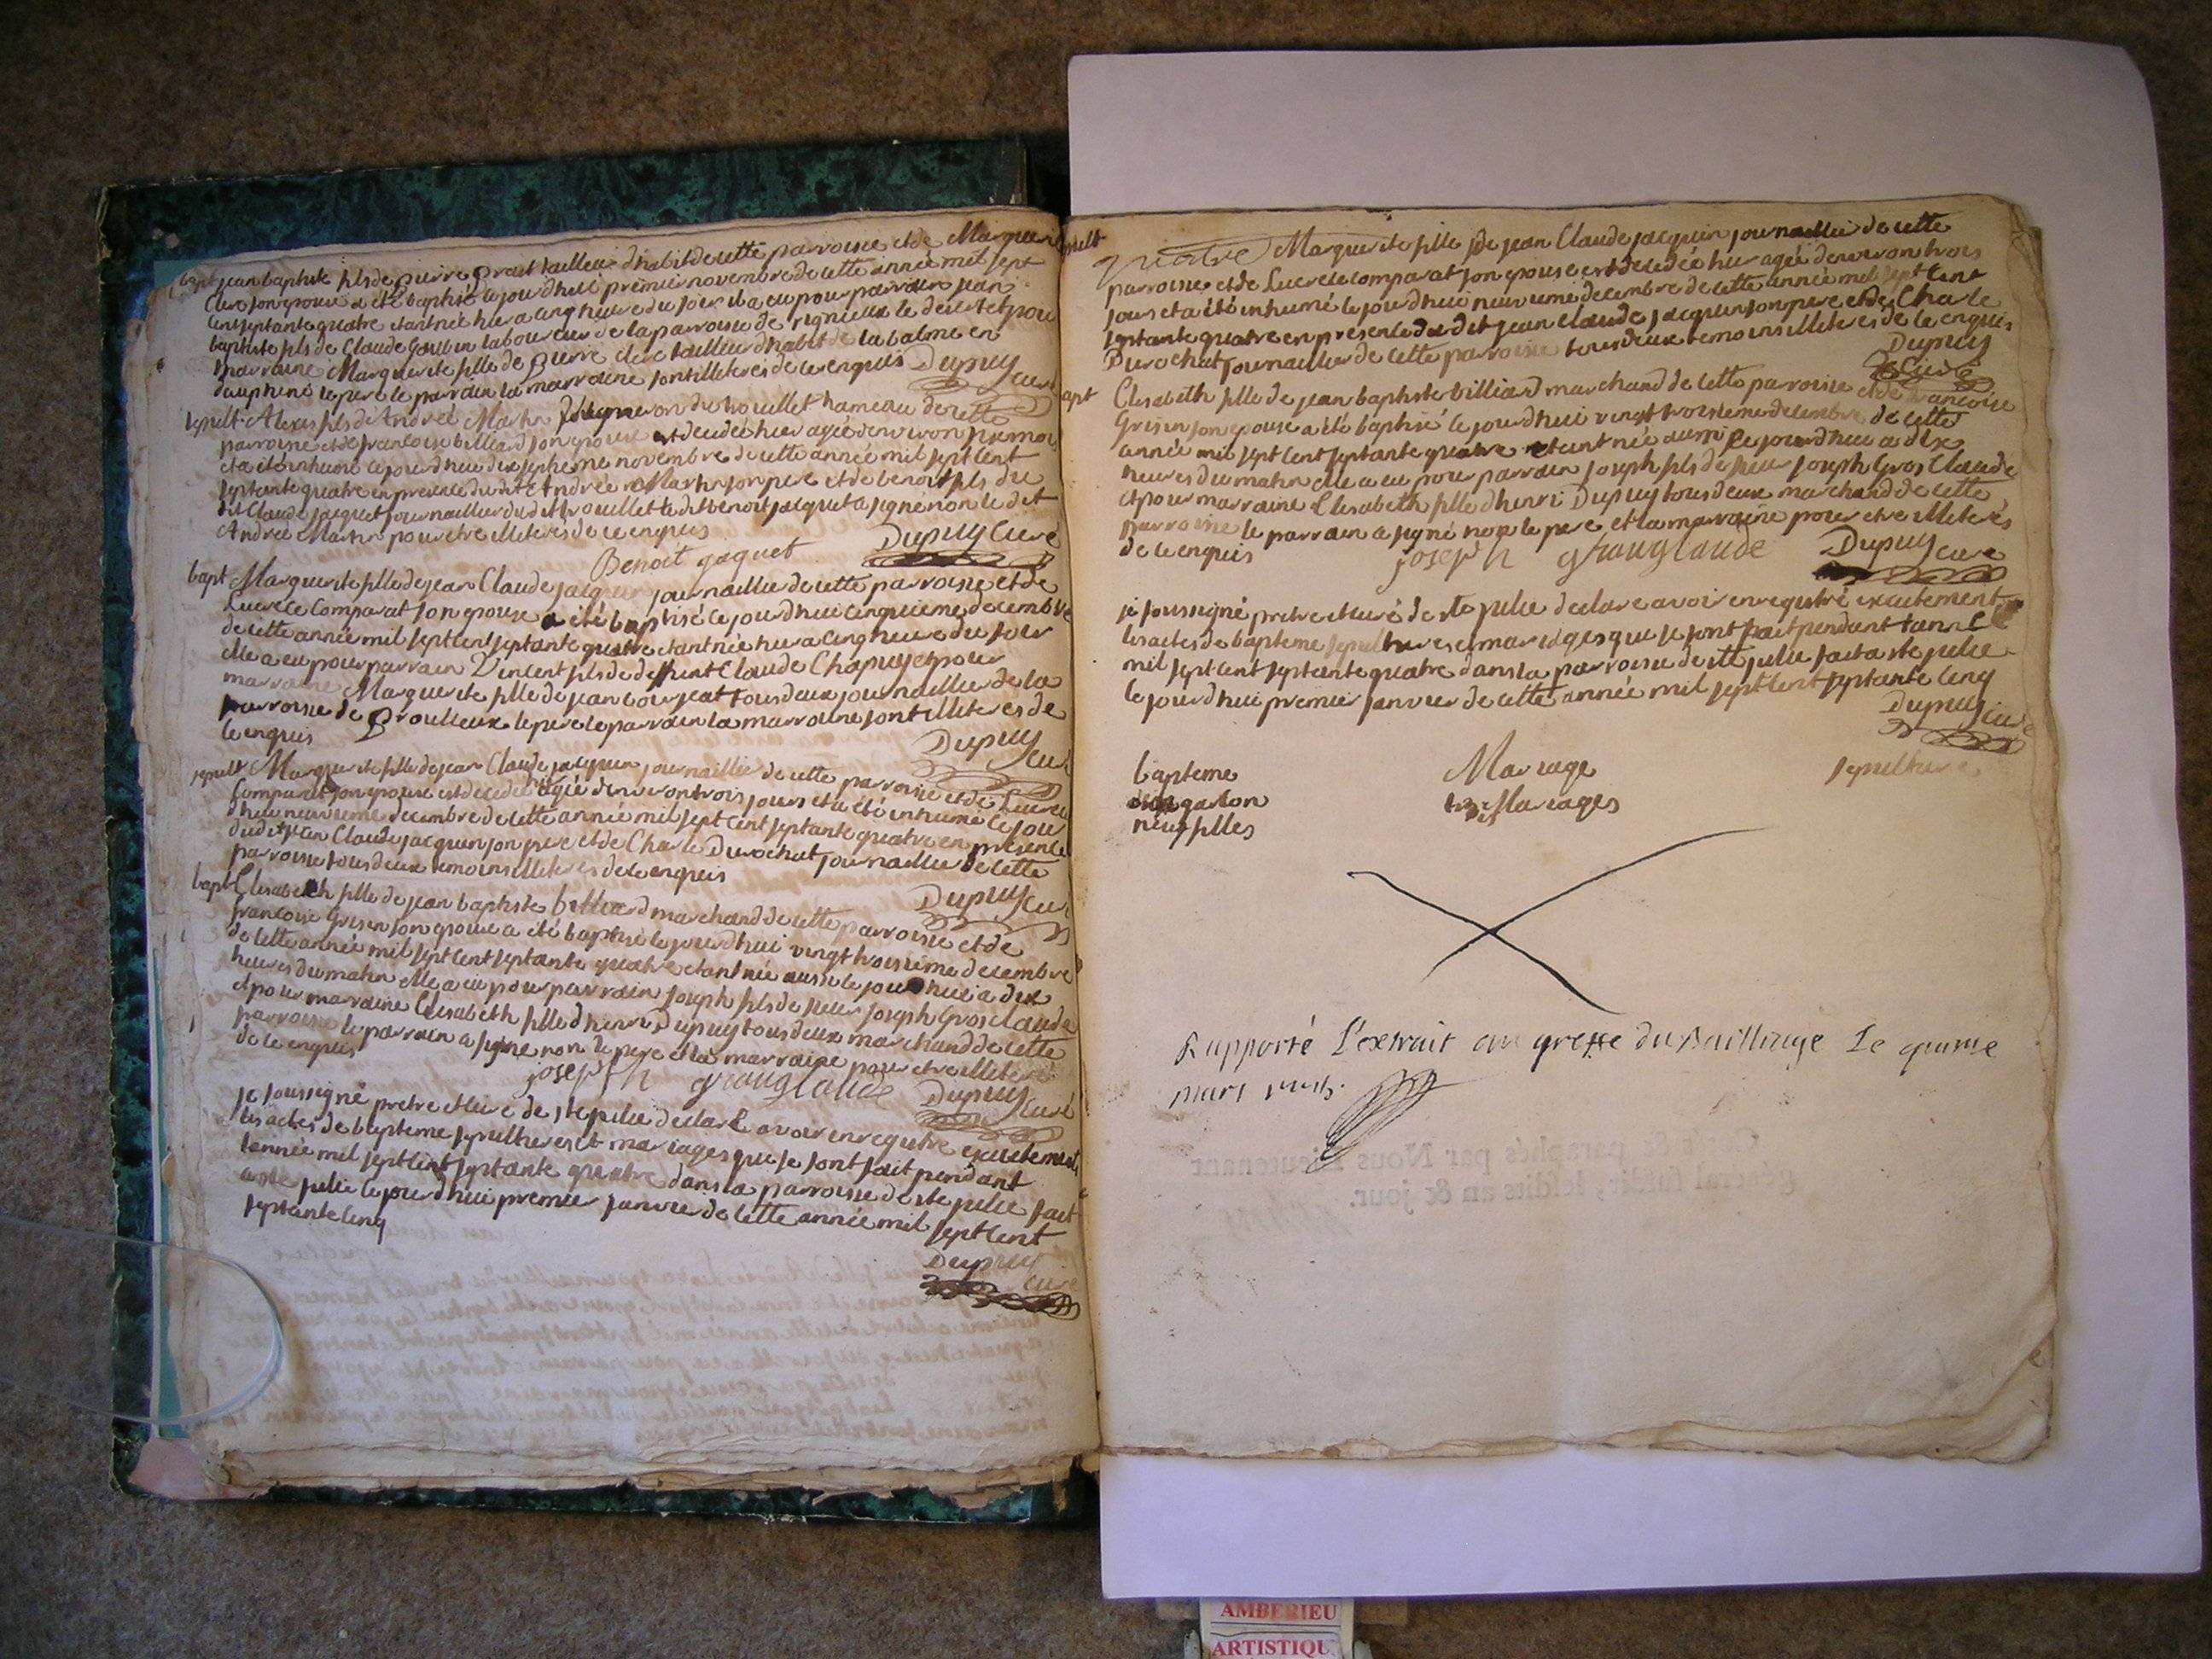 bapt jean baptiste fils de pierre Prost tailleur dhabit de cette parroisse et de Marguerite
Clerc son epouse a été baptisé le jourdhui premier novembre de cette année mil sept
cent septante quatre etant né hier a cinq heure du soir il a eu pour parrain jean
baptiste fils de Claude Goubin laboureur de la parroisse de rignieux le desert et pour
marraine Marguerite fille de pierre clerc tailleur dhabit de la balme en
dauphiné le pere le parrain la marraine sont illiteres de ce enquis Dupuy curé
sepult Alexis fils de André Martin vigneron du trouillet hameau de cette
parroisse et de francoise billiard son epouse est decedé hier agé denviron
et a été inhumé le jourdhui dix septieme novembre de cette année mil sept cent
septante quatre en presence du dit André Martin son pere et de benoit fils du
dit Claude jacquet journaillier du dit trouillet le dit benoit jacquet a signé non le dit
André Martin pour etre illiteres de ce enquis
Benoit gaquet Dupuy Curé
bapt Marguerite fille de jean Claude jacquin journaillier de cette parroisse et de
Lucrece Comparat son epouse a été baptisé le jourdhui cinquieme decembre
de cette année mil sept cent septante quatre etant née hier a cinq heure du soir
elle a eu pour parrain Vincent fils de defunt Claude Chapuy et pour
marraine Marguerite fille de jean bourjeat tous deux journaillier de la
parroisse de Proulieux le pere le parrain la marraine sont illiteres de
ce enquis Dupuy curé
sepult Marguerite fille de jean Claude jacquin journaillier de cette parroisse et de Lucrece
Comparat son epouse est decedé agée denviron trois jours et a été inhumé le jour
dhui neuvieme decembre de cette année mil sept cent septante quatre en presence
du dit jean Claude jacquin son pere et de Charle Durochat journaillier de cette
parroisse tous deux temoins illiteres de ce enquis
Dupuy curé
bapt Elisabeth fille de jean baptiste billiard marchand de cette parroisse et de
francoise Grisen son epouse a été baptisé le jourdhui vingt troisieme decembre
de cette année mil sept cent septante quatre etant née aussi le jourdhui a dix
heures du matin elle a eu pour parrain joseph fils de sieur joseph Gros Claude
et pour marraine Elisabeth fille dhenri Dupuy tous deux marchand de cette
parroisse le parrain a signé non le pere et la marraine pour etre illiteres
de ce enquis
joseph grauglaude Dupuy curé
je soussigné pretre et curé de ste julie declare avoir enregistré exactement
les actes de bapteme sepultures et mariages que se sont fait pendant
lannée mil sept cent septante quatre dans la parroisse de ste julie fait
a ste julie le jourdhui premier janvier de cette année mil sept cent
septante cinq
Dupuy
curé
sepult Marguerite fille de jean Claude jacquin journaillier de cette
parroisse et de Lucrece Comparat son epouse est decedée hier agée denviron trois
jours et a été inhumé le jourdhui neuvieme decembre de cette année mil sept cent
septante quatre en presence du dit jean Claude jacquin son pere et de Charle
Durochat journaillier de cette parroisse tous deux temoins illiteres de ce enquis
Dupuy
Curé
bapt Elisabeth fille de jean baptiste billiard marchand de cette parroisse et de francoise
Grisen son epouse a été baptisé le jourdhui vingt troisieme decembre de cette
année mil sept cent septante quatre etant née aussi le jourdhui a dix
heures du matin elle a eu pour parrain joseph fils de sieur joseph Gros Claude
et pour marraine Elisabeth fille dhenri Dupuy tous deux marchand de cette
parroisse le parrain a signé non le pere et la marraine pour etre illiteres
de ce enquis joseph grauglaude Dupuy curé
je soussigné pretre et curé de ste julie declare avoir enregistré exactement
les actes de bapteme sepultures et mariages que se sont fait pendant lanné
mil sept cent septante quatre dans la parroisse de ste julie fait a ste julie
le jourdhui premier janvier de cette année mil sept cent septante cinq
Dupuy curé
bapteme Mariage sepulture
garcon Mariages
neuf filles
Rapporté L'extrait au greffe du Bailliage Le
mars
AMBERIEU
ARTISTIQU